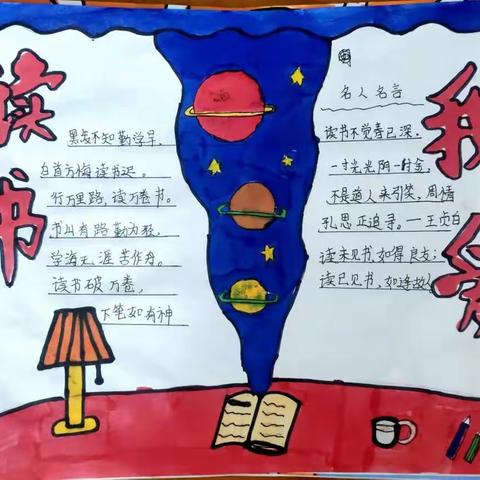 读书
黑发不知勤学早,
白首方悔读书迟。
行万里路,读万卷书。
书山有路勤为径,
学海无涯苦作舟。
读书破万卷,
下笔如有神
名人名言
读书不觉春已深,
一寸光阴一寸金,
不是道人来引笑,周情
孔思正追寻。一王贞白
读未见书,如得良友;
读已见书,如逢故人
我爱